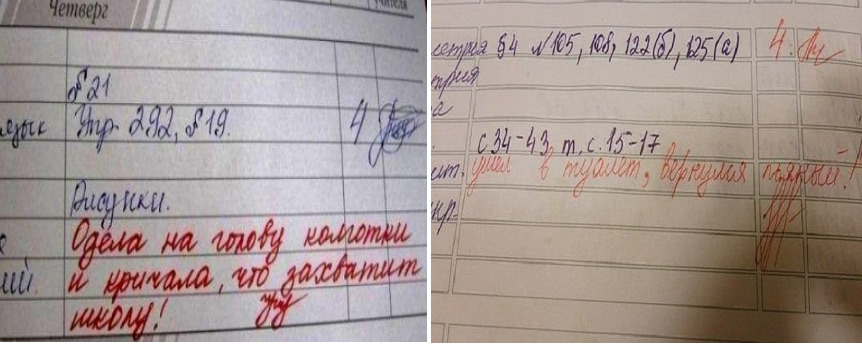 Четверг
учителя
§ 21
язык Упр. 292, § 19. 4
Рисунки.
Одела на голову колготки
ий. и кричала, что захватит
школу!
метрия §4 №105, 108, 122(б), 125(а) 4.
трия
а
с 34-43 т. с. 15-17
ит. ушел в туалет, вернулся пьяный!